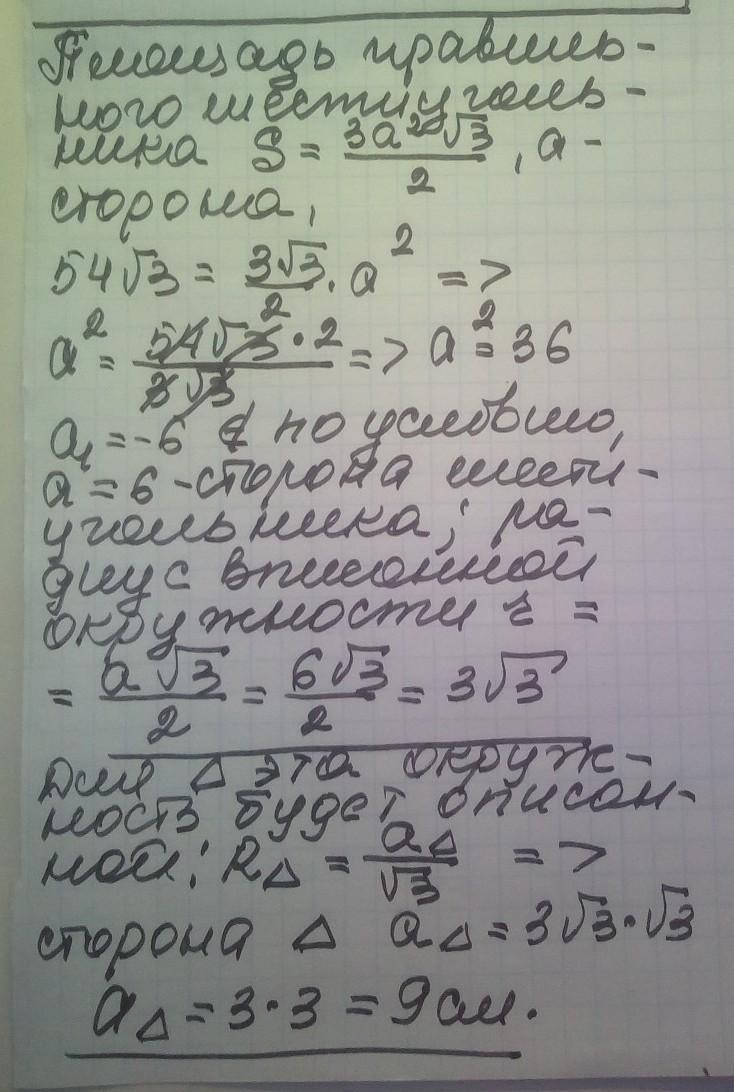 Площадь правиль-
ного шестиуголь-
ника S = 3a²√3/2, a -
сторона,
54√3 = 3√3/2 · a² =>
a² = 54√3 · 2 / 3√3 => a² = 36
a₁ = -6 ∉ по условию,
a = 6 - сторона шести-
угольника; ра-
диус вписанной
окружности r =
= a√3/2 = 6√3/2 = 3√3
Для Δ эта окруж-
ность будет описан-
ной: RΔ = aΔ/√3 =>
сторона Δ aΔ = 3√3·√3
aΔ = 3·3 = 9 см.